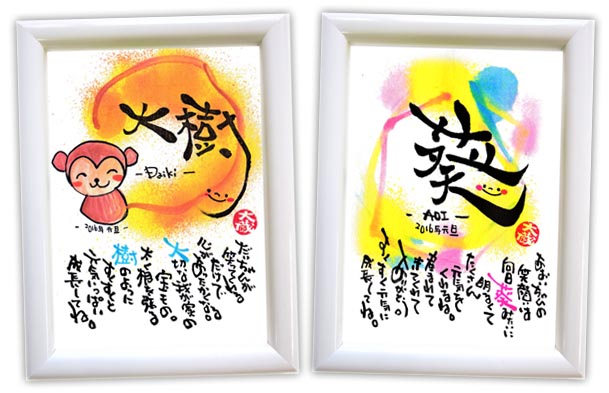 大樹
-Daiki-
-2016年元旦-
だいちゃんが
笑ってる。
だけで
心があたたかくなる。
大切な我が家の
宝もの。
大樹を登る。
樹のように
すくすくと
元気いっぱい
成長してね。
葵
-AOI-
2016年元旦
あおいちゃんの
笑顔は
向日葵みたいに
明るくて
たくさん
元気を
くれるね。
ありがとう。
すくすく元気に
成長してね。